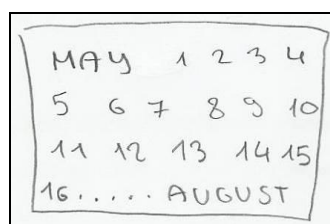 MAY 1 2 3 4
5 6 7 8 9 10
11 12 13 14 15
16..... AUGUST